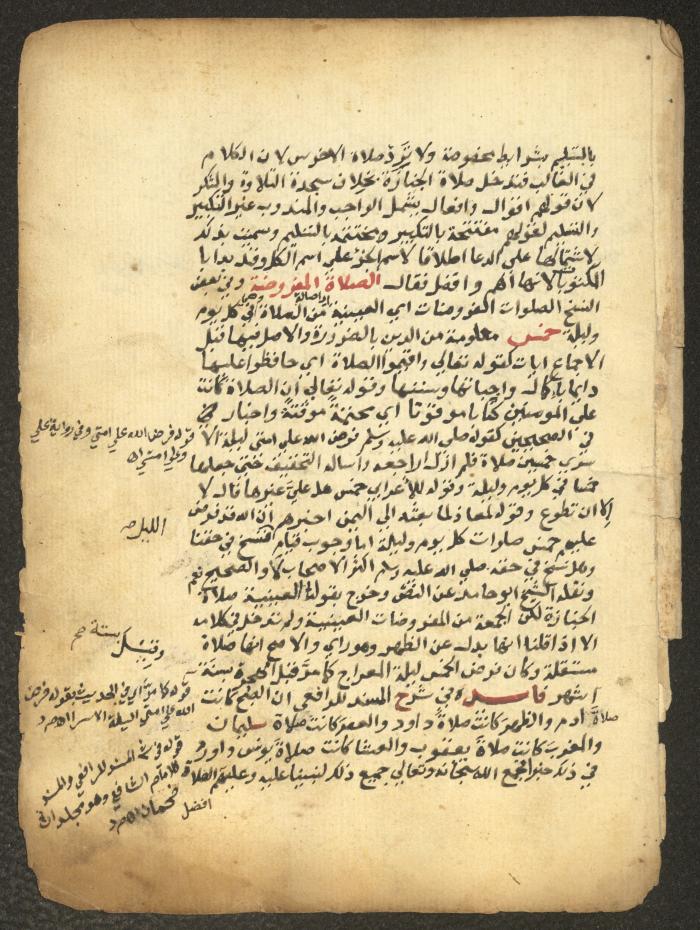 بالتسليم بشرايط مخصوصة ولا ترد صلاة الاخرس لان الكلام
في الغالب فتدخل صلاة الجنازة بخلاف سجدة التلاوة والشكر
لان قولهم اقوال وافعال يشمل الواجب والمندوب غير التكبير
والتسليم لقولهم مفتتحة بالتكبير ومختتمة بالتسليم وسميت بذلك
لاشتمالها على الدعا اطلاقا لاسم الجزء على اسم الكل وقد بدا با
المكتوبات لانها اهم وافضل فقال الصلاة المفروضة وفي بعض
النسخ الصلوات المفروضات اي العينية من الصلاة في كل يوم
وليلة خمس معلومة من الدين بالضرورة والاصل فيها قبل
الاجماع ايات كقوله تعالي واقيموا الصلاة اي حافظوا عليها
دايما باكمال واجباتها وسننها وقوله تعالي ان الصلاة كانت
على المومنين كتابا موقوتا اي محتمة موقتة واخبار
في الصحيحين كقوله صلى الله عليه وسلم فرض الله على امتي ليلة الا
سري خمسين صلاة فلم ازل اراجعه واساله التخفيف حتى جعلها
خمسا في كل يوم وليلة وقوله للاعرابي خمس هل علي غيرها قال لا
الا ان تطوع وقوله لمعاذ لما بعثه الى اليمن اخبرهم ان الله قد فرض
عليهم خمس صلوات كل يوم وليلة اما وجوب قيام فنسخ في حقنا
وهل نسخ في حقه صلى الله عليه وسلم اكثر الاصحاب لا والصحيح نعم
ونقله الشيخ ابو حامد عن النص وخرج بقولنا العينية صلاة
الجنازة لكن الجمعة من المفروضات العينية ولم تدخل في كلامه
الا اذا قلنا انها بدل عن الظهر وهو راي والاصح انها صلاة
مستقلة وكان فرض الخمس ليلة المعراج كما مر قبل الهجرة بسنة
اشهر في شرح المسند للرافعي ان الصبح كانت
صلاة ادم والظهر كانت صلاة داود والعصر كانت صلاة سليمان
والمغرب كانت صلاة يعقوب والعشا كانت صلاة يونس واورد
في ذلك خبرا فجمع الله سبحانه وتعالي جميع ذلك لنبينا عليه وعليهم الصلاة
افضل
قوله فرض الله على امتي وفي رواية علي
الليل صح
وقيل بستة صح
قوله كما مر اي في الحديث بقوله فرض
الله على امتي ليلة الاسرا
قوله في شرح المسند للرافعي والمسند
للامام الشافعي وهو مجلدان